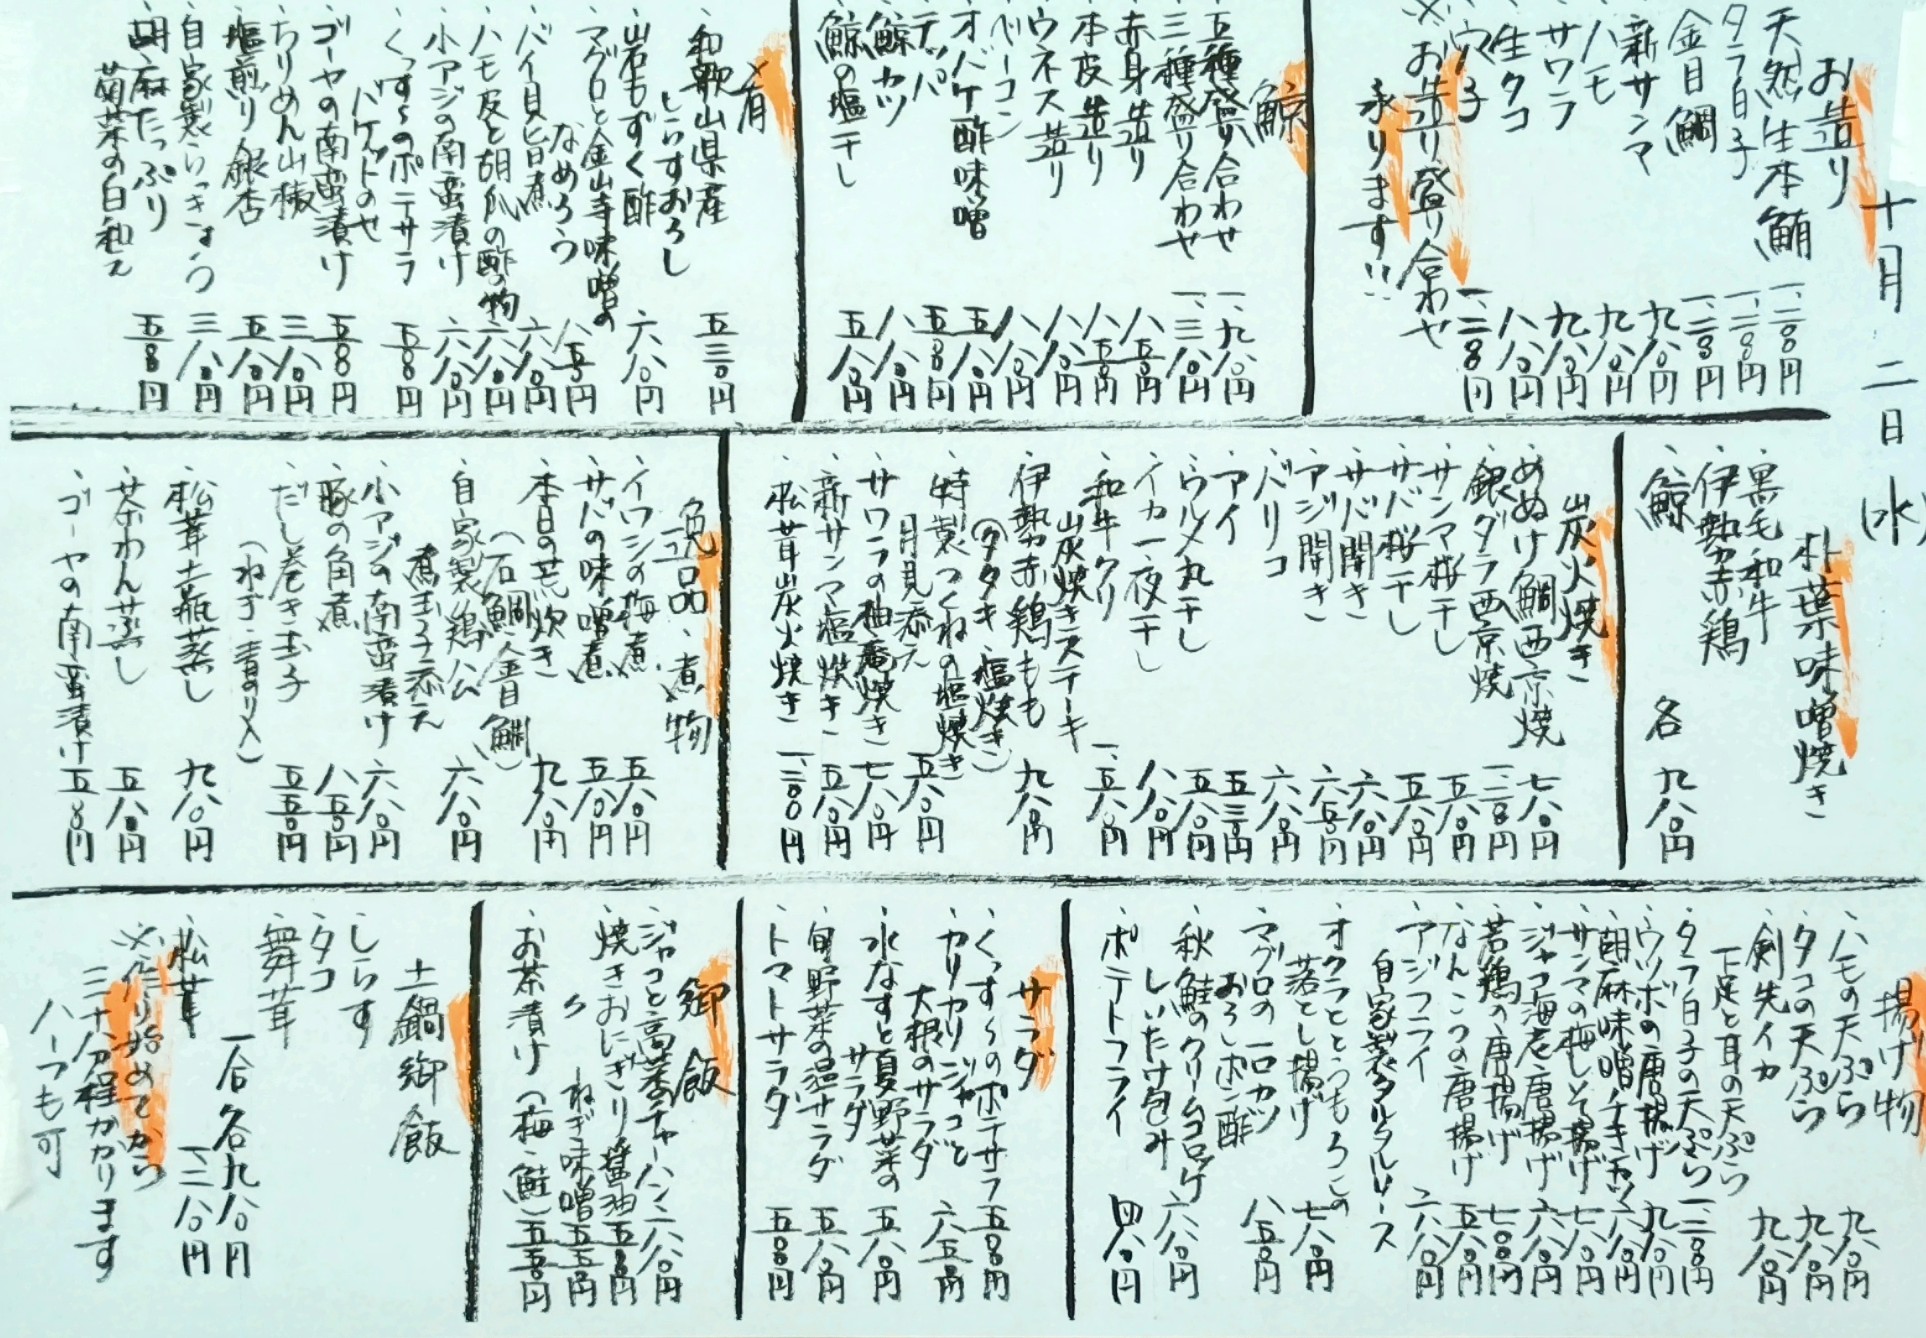 十月二日(水)
お造り
、天然生本鮪 一、二八〇円
、タラ白子 一、二八〇円
、金目鯛 一、二八〇円
、新サンマ 九八〇円
、ハモ 九八〇円
、サワラ 九八〇円
、生タコ 八八〇円
一、二八〇円
※お造り盛り合わせ
承ります!!
鯨
、五種盛り合わせ 一、九八〇円
、三種盛り合わせ 一、三八〇円
、赤身造り 八五〇円
、本皮造り 八五〇円
、ウネス造り 八八〇円
、ベーコン 八八〇円
、オバケ酢味噌 五八〇円
、テッパ 五八〇円
、鯨カツ 八八〇円
、鯨の塩干し 五八〇円
肴
、和歌山県産
しらすおろし 五三〇円
、岩もずく酢 六八〇円
、マグロと金山寺味噌の
なめろう 八五〇円
、バイ貝旨煮 六八〇円
、ハモ皮と胡瓜の酢の物 六八〇円
、小アジの南蛮漬け 六八〇円
、くっす〜のポテサラ
バゲットのせ 五八〇円
、ゴーヤの南蛮漬け 五八〇円
、ちりめん山椒 三八〇円
、塩煎り銀杏 五八〇円
、自家製らっきょう 三八〇円
、胡麻たっぷり
菊菜の白和え 五八〇円
朴葉味噌焼き
、黒毛和牛
、伊勢赤鶏
、鯨 各 九八〇円
炭火焼き
、めぬけ鯛西京焼 七八〇円
、銀ダラ西京焼 一、二八〇円
、サンマ桜干し 五八〇円
、サバ桜干し 五八〇円
、サバ開き 六八〇円
、アジ開き 六五〇円
、バリコ 六八〇円
、アイ 五三〇円
、ウルメ丸干し 五八〇円
、イカ一夜干し 八八〇円
、和牛クリ
炭焼きステーキ 一、五八〇円
、伊勢赤鶏もも
(タタキ・塩焼き) 九八〇円
、特製つくねの塩焼き
月見添え 五八〇円
、サワラの柚庵焼き 七八〇円
、新サンマ塩焼き 五八〇円
、松茸炭火焼き 一、二八〇円
逸品・煮物
、イワシの梅煮 五八〇円
、サバの味噌煮 五八〇円
、本日の荒炊き
(石鯛・金目鯛) 九八〇円
、自家製鶏ハム
煮玉子添え 六八〇円
、小アジの南蛮漬け 六八〇円
、豚の角煮 八五〇円
、だし巻き玉子
(ねぎ・青のり入) 五五〇円
、松茸土瓶蒸し 九八〇円
、茶わん蒸し 五八〇円
、ゴーヤの南蛮漬け 五八〇円
揚げ物
、ハモの天ぷら 九八〇円
、タコの天ぷら 九八〇円
、剣先イカ
下足と耳の天ぷら 九八〇円
、タラ白子の天ぷら 一、二八〇円
、ウツボの唐揚げ 九八〇円
、胡麻味噌チキカツ 六八〇円
、サンマの梅しそ揚げ 七八〇円
、ジャコ海老唐揚げ 六八〇円
、若鶏の唐揚げ 七〇〇円
、なんこつの唐揚げ 五八〇円
、アジフライ
自家製タルタルソース 六八〇円
、オクラととうもろこしの
落とし揚げ 七八〇円
、マグロの一口カツ
おろしポン酢 八五〇円
、秋鮭のクリームコロッケ
しいたけ包み 六八〇円
、ポテトフライ 四八〇円
サラダ
、くっす〜のポテサラ 五八〇円
、カリカリジャコと
大根のサラダ 六五〇円
、水なすと夏野菜の
サラダ 五八〇円
、旬野菜の温サラダ 五八〇円
、トマトサラダ 五八〇円
御飯
、ジャコと高菜のチャーハン 六八〇円
、焼きおにぎり醤油 五五〇円
、〃 ねぎ味噌 五五〇円
、お茶漬け(梅・鮭) 五五〇円
土鍋御飯
、しらす
、タコ
、舞茸
一合各九八〇円
、松茸 一、二八〇円
※作り始めてから
三十分程かかります
ハーフも可